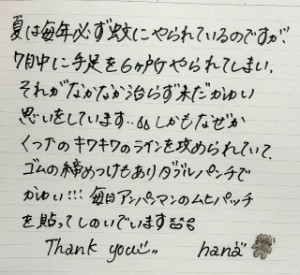 夏は毎年必ず蚊にやられているのですが、
7月中に手足を6ヶ所やられてしまい、
それがなかなか治らず未だかゆい
思いをしています‥💦しかもなぜか
くつ下のキワキワのラインを攻められていて、
ゴムの締めつけもありダブルパンチで
かゆい!!! 毎日アンパンマンのムヒパッチ
を貼ってしのいでいます
Thank you hana